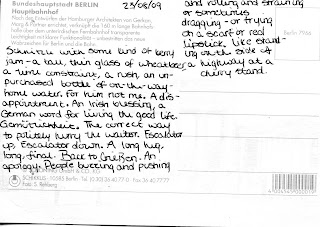 Bundeshauptstadt BERLIN
Hauptbahnhof
Nach den Entwürfen der Hamburger Architekten von Gerkan,
Marg & Partner errichtet, verknüpft die 160 m lange Bahnsteig-
halle über den unterirdischen Fernbahnhof transparente
Leichtigkeit mit klarer Funktionalität - unterstreicht das neue
Wahrzeichen für Berlin und die Bahn.
23/08/09
Schnitzel with some kind of berry
jam - a tall, thin glass of wheatbeer,
a time constraint, a rush, an un-
purchased bottle of on-the-way-
home water. For him not me. A dis-
appointment. An Irish blessing, a
German word for living the good life.
Gemütlichkeit. The correct way
to politely hurry the waiter. Escalator
up. Escalator down. A long hug,
long, final. Back to Gießen. An
apology. People butting and pushing
and rolling and straining
or sometimes
dragging - or trying
on a scarf or red
lipstick, like stand-
ing on the side of
a highway at a
cherry stand.
Berlin 7966
SCHIKKUS · 10585 Berlin · Tel. (0 30) 36 40 77 0 · Fax 36 40 77 77
Foto: S. Rehberg